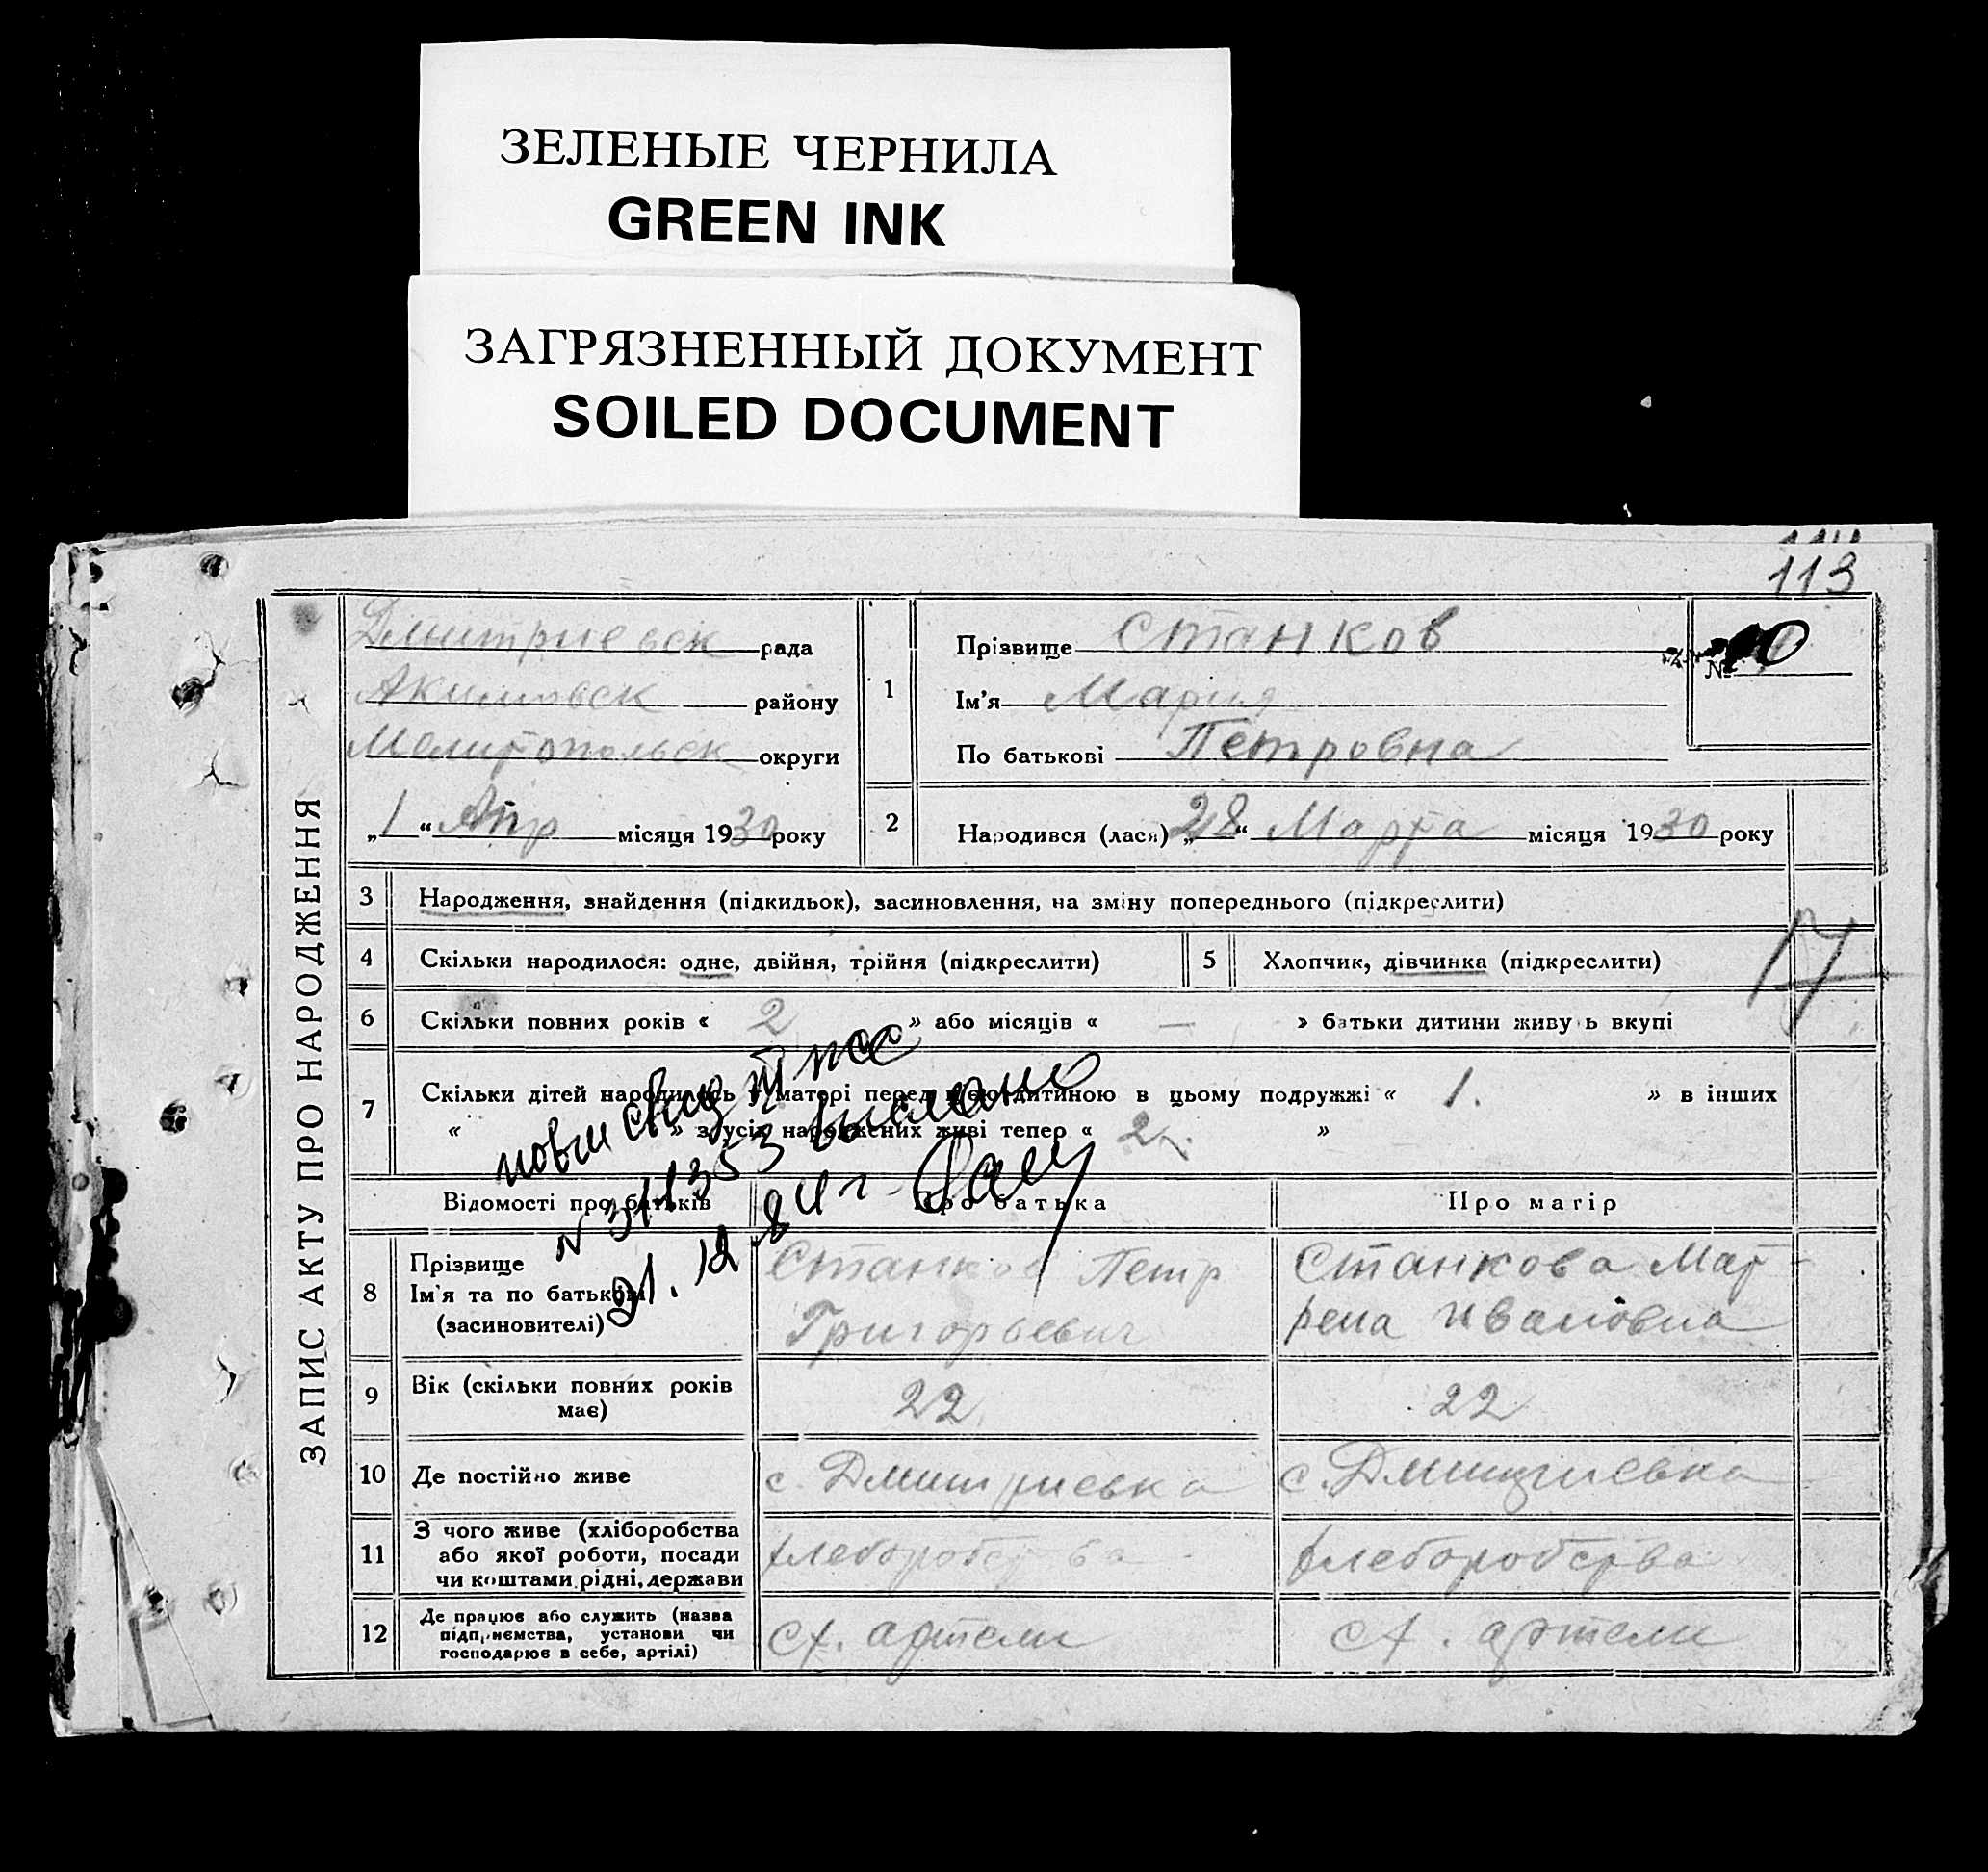 ЗЕЛЕНЫЕ ЧЕРНИЛА
GREEN INK
ЗАГРЯЗНЕННЫЙ ДОКУМЕНТ
SOILED DOCUMENT
113
ЗАПИС АКТУ ПРО НАРОДЖЕННЯ
Дмитриевск рада
Акимовск району
Мелитопольск округи
„1“ Апр місяця 1930 року
1
Прізвище Станков
Ім'я Мария
По батькові Петровна
№
2
Народився (лася) „28“ Марта місяця 1930 року
3 Народження, знайдення (підкидьок), засиновлення, на зміну попереднього (підкреслити)
4 Скільки народилося: одне, двійня, трійня (підкреслити)
5 Хлопчик, дівчинка (підкреслити)
6 Скільки повних років « 2 » або місяців « — » батьки дитини живуть вкупі
7 Скільки дітей народилось у матері перед цією дитиною в цьому подружжі « 1. » в інших
« » з усіх народжених живі тепер « 2. »
21.12.84 г.
Відомості про батьків
Про батька
Про матір
8 Прізвище
Ім'я та по батькові
(засиновителі)
Станков Петр
Григорьевич
Станкова Мат-
рена Ивановна
9 Вік (скільки повних років
має)
22
22
10 Де постійно живе
с. Дмитриевка
с. Дмитриевка
11 З чого живе (хліборобства
або якої роботи, посади
чи коштами рідні, держави
хлеборобства
хлеборобства
12 Де працює або служить (назва
підприємства, установи чи
господарює в себе, артілі)
сх. артели
сх. артели